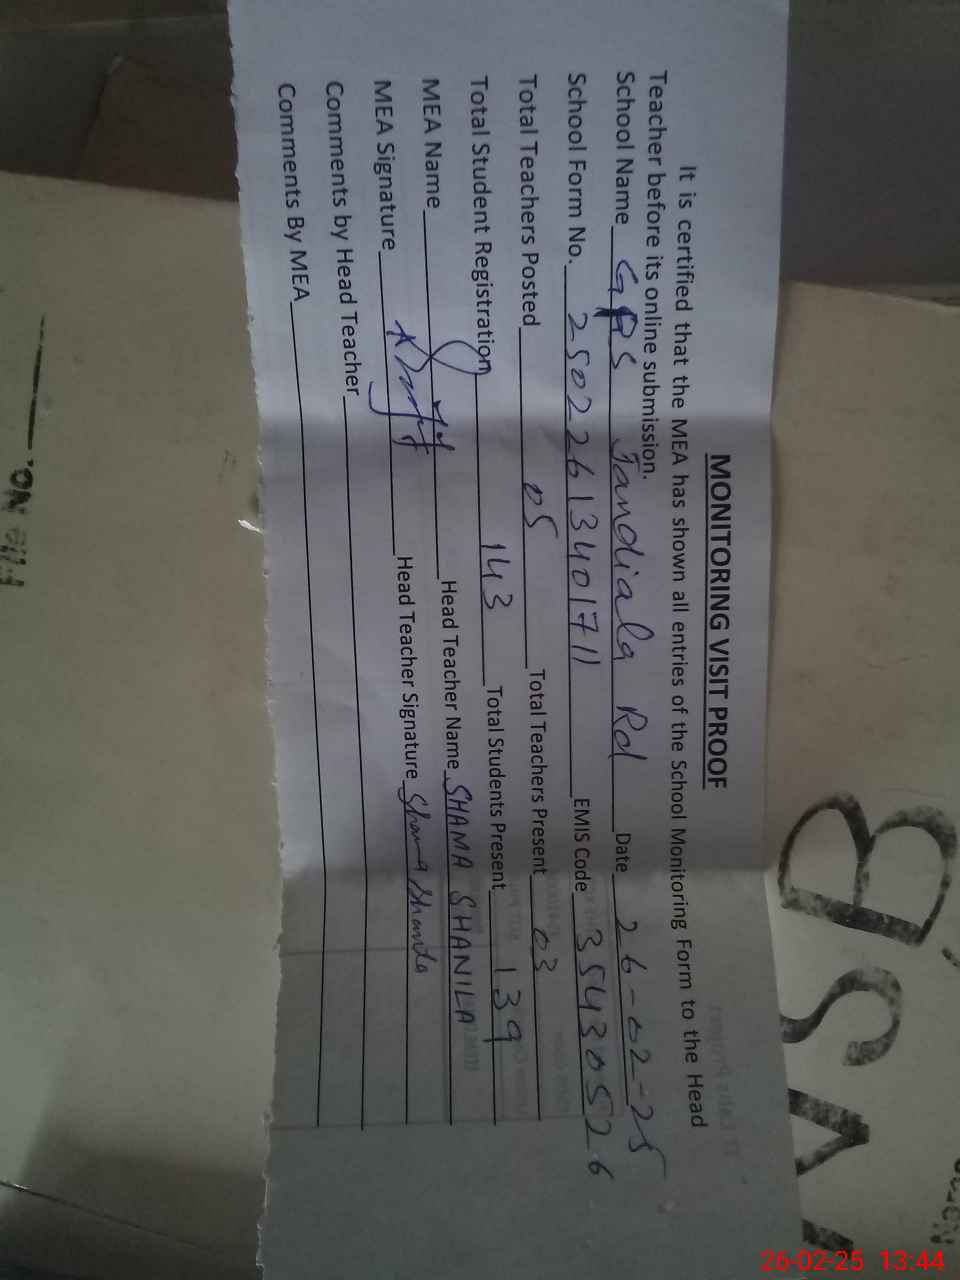 MONITORING VISIT PROOF
It is certified that the MEA has shown all entries of the School Monitoring Form to the Head
Teacher before its online submission.
School Name GPS Jandiala Rd Date 26-02-25
School Form No. 2502261340171 EMIS Code 35430526
Total Teachers Posted 05 Total Teachers Present 03
Total Student Registration 143 Total Students Present 139
MEA Name Head Teacher Name SHAMA SHANILA
MEA Signature Head Teacher Signature Shama
Comments by Head Teacher
Comments By MEA
File No.
26-02-25 13:44